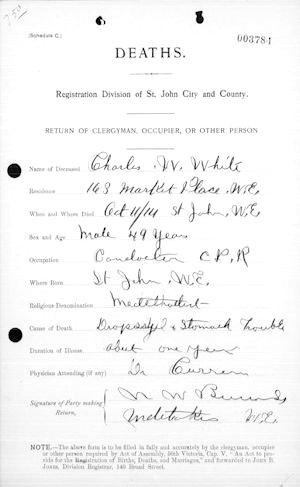 750
(Schedule C.)
003784
DEATHS.
Registration Division of St. John City and County.
RETURN OF CLERGYMAN, OCCUPIER, OR OTHER PERSON
Name of Deceased Charles W. White
Residence 163 Market Place W.E.
When and Where Died Oct 11/14 St John, W.E.
Sex and Age Male 49 Years
Occupation Conductor C.P.R
Where Born St John, W.E.
Religious Denomination
Cause of Death Dropsy & Stomach Trouble
Duration of Illness about one year
Physician Attending (if any) Dr Curren
Signature of Party making N W
Return, W.E.
NOTE.—The above form is to be filled in fully and accurately by the clergyman, occupier
or other person required by Act of Assembly, 50th Victoria, Cap. V., "An Act to pro-
vide for the Registration of Births, Deaths, and Marriages," and forwarded to JOHN B.
JONES, Division Registrar, 140 Broad Street.